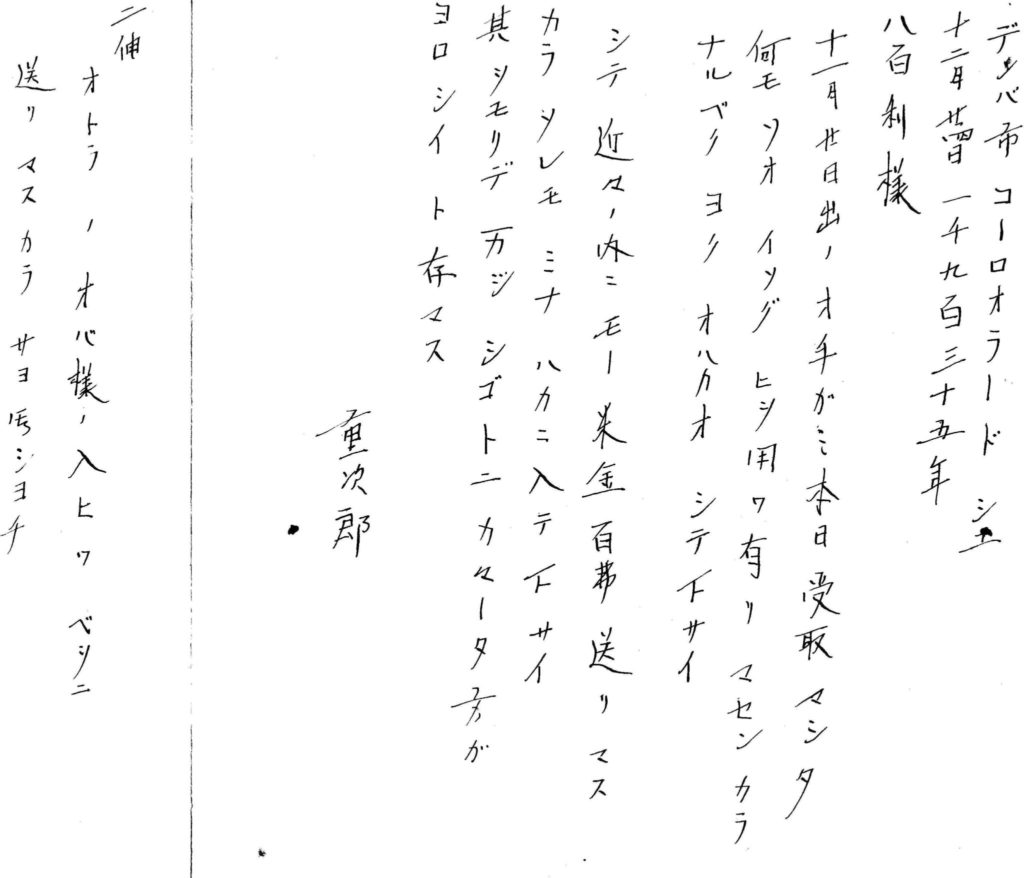 デンバ市 コーロオラード シュー
十二月廿四日 一千九百三十五年
八百利様
十一月廿日出ノ オ手がミ 本日 受取 マシタ
何モ ソオ イソグ ヒシ用ワ 有リ マセン カラ
ナルベク ヨク オハカオ シテ 下サイ
シテ 近々ノ内ニ モー 米金 百弗 送リ マス
カラ ソレモ ミナ ハカニ 入テ 下サイ
其 シモリデ 万ジ シゴトニ カヽータ 方が
ヨロシイ ト 存マス
重次郎
二伸
オトラ ノ オバ様ノ 入ヒワ ベツニ
送リ マス カラ サヨ シヨチ